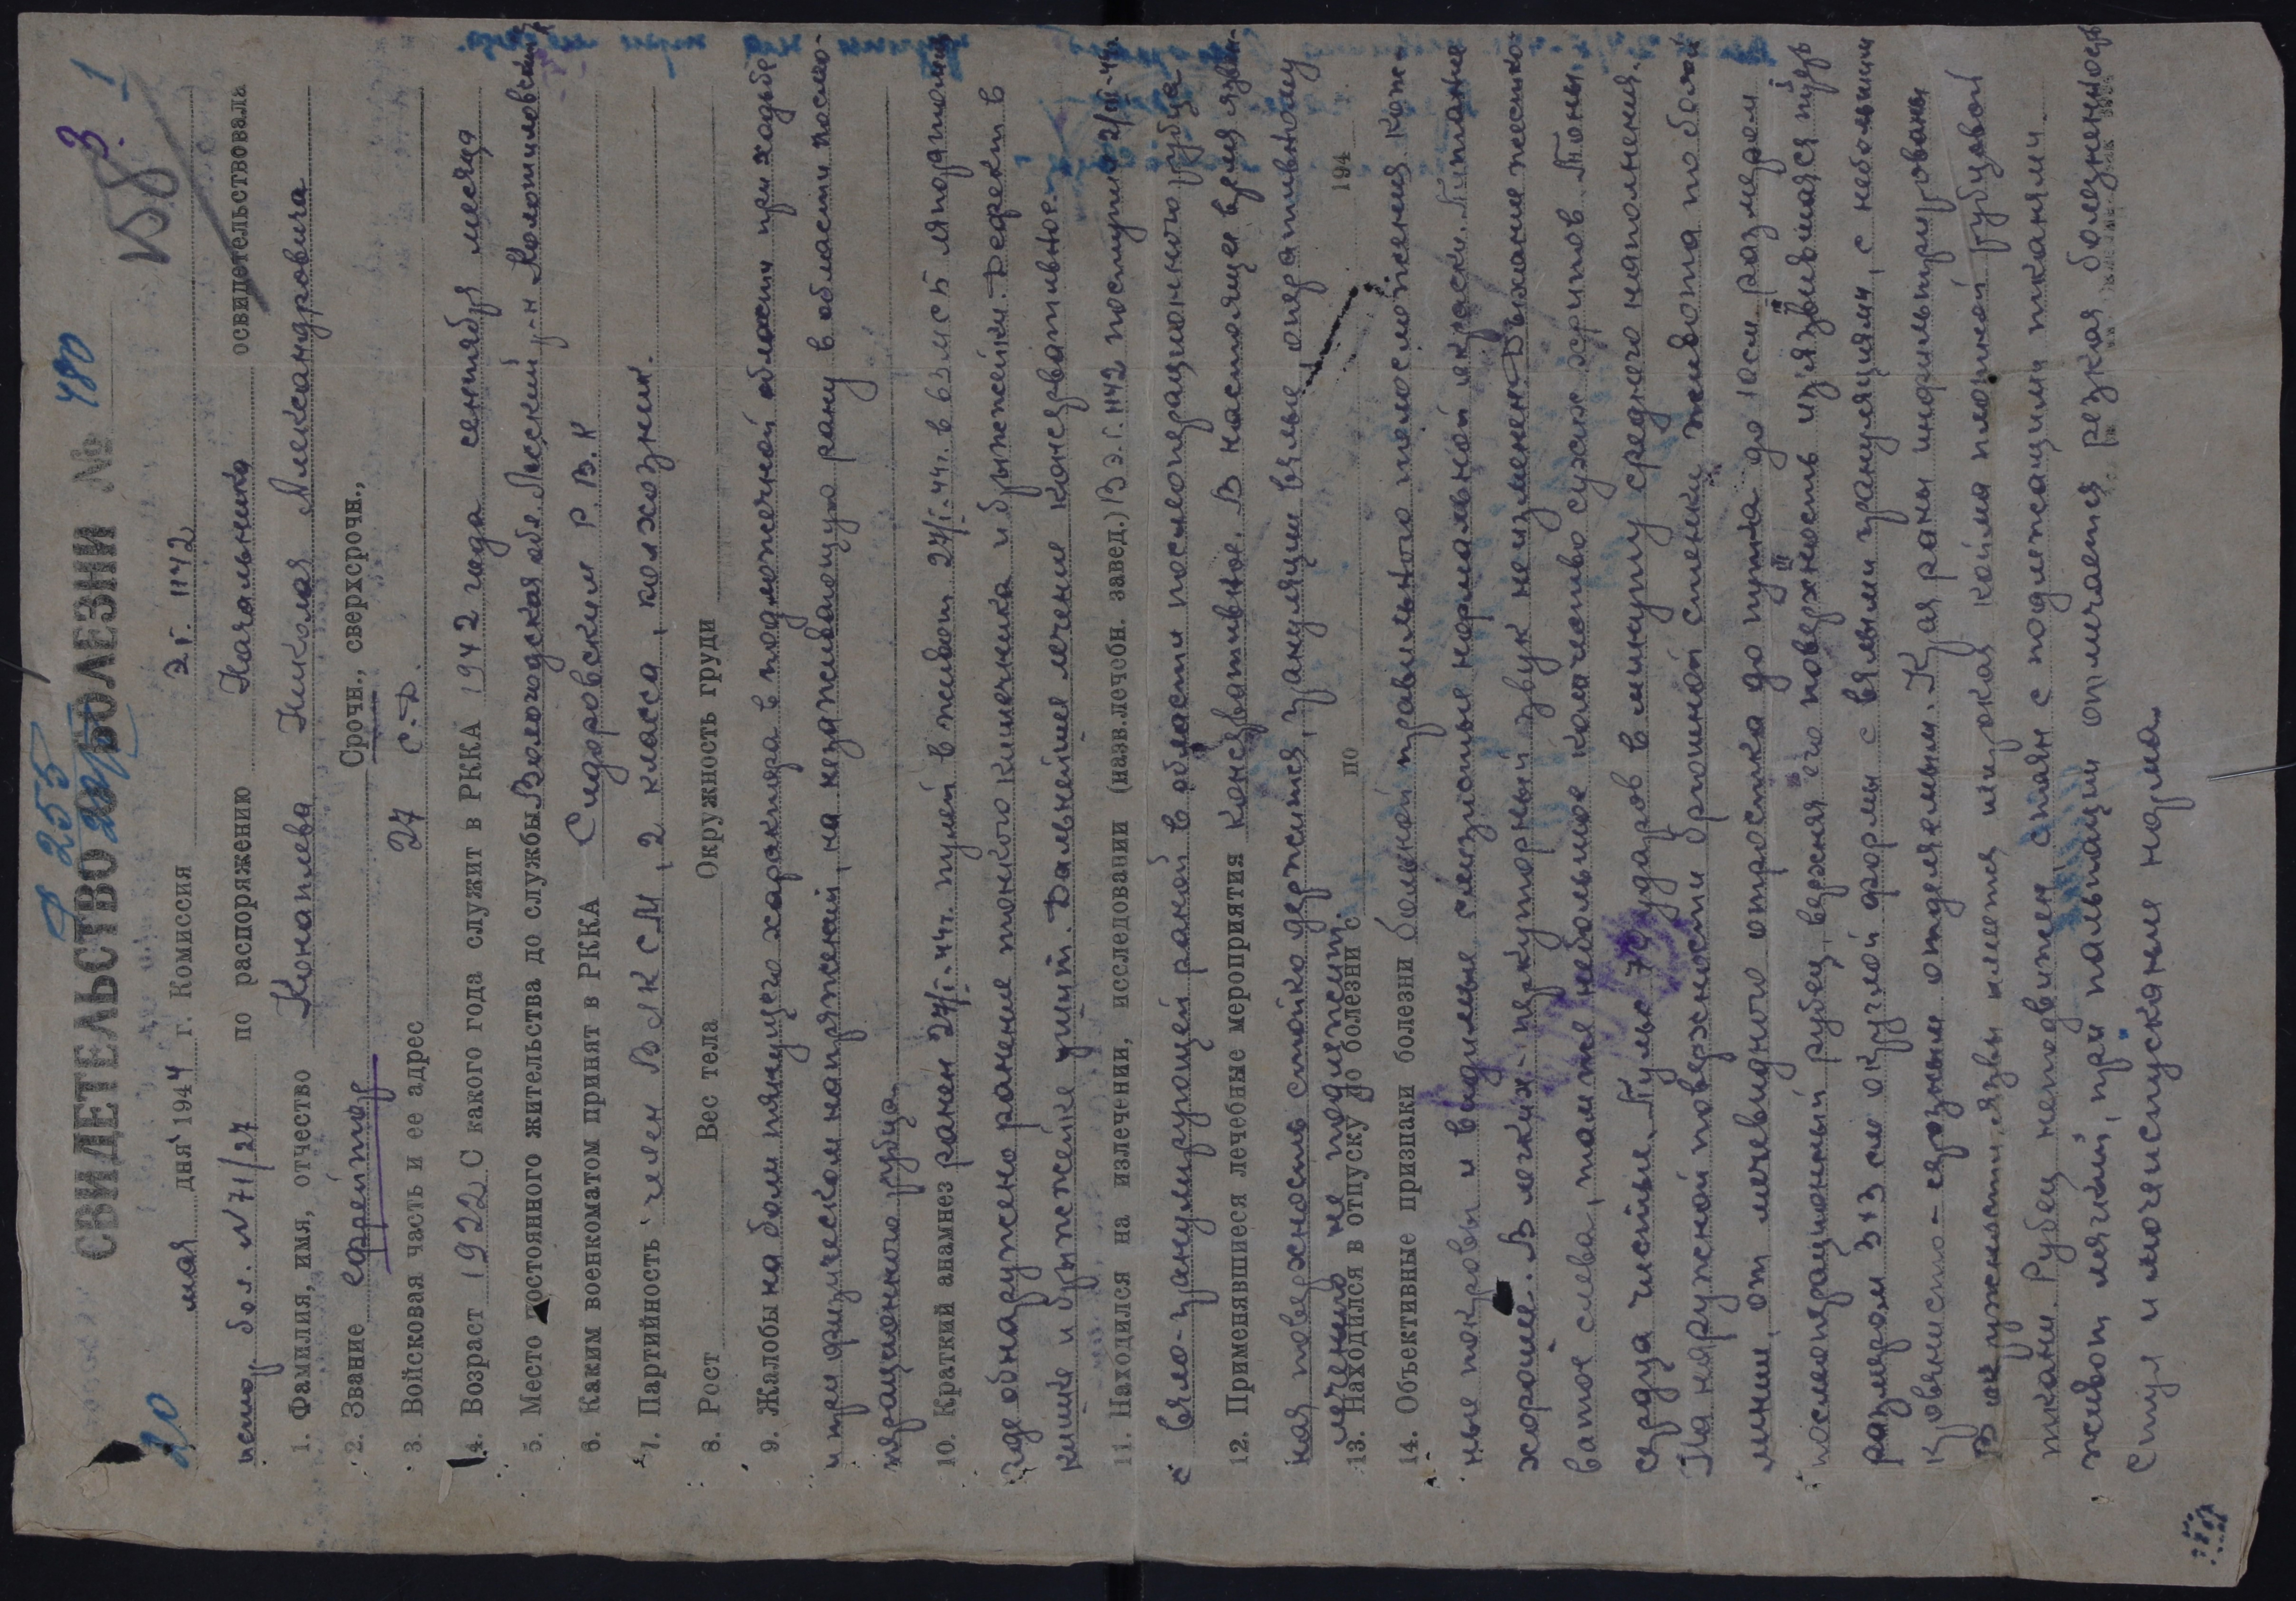 Ф 255
СВИДЕТЕЛЬСТВО О БОЛЕЗНИ № 480
3. 1
20 мая дня 1944 г. Комиссия Э.Г. 1142
истор. бол. N 71/27 по распоряжению Начальника освидетельствовала
1. Фамилия, имя, отчество Коноплева Николая Александровича
2. Звание ефрейтор Срочн., сверхсрочн.,
3. Войсковая часть и ее адрес 27 с.д.
4. Возраст 1922 С какого года служит в РККА 1942 года сентября месяца
5. Место постоянного жительства до службы Вологодская обл. р-н
6. Каким военкоматом принят в РККА Сидоровским Р.В.К
7. Партийность член ВЛКСМ, 2 класса, колхозник.
8. Рост Вес тела Окружность груди
9. Жалобы на боли тянущего характера в подложечной области при ходьбе
и при физическом напряжении, на незаживающую рану в области после-
операционного рубца.
10. Краткий анамнез ранен 27/I-44г. пулей в живот. 27/I-44г. в
где обнаружено ранение тонкого кишечника и брыжейки. Дефект в
кишке и брыжейке ушит. Дальнейшее лечение консервативное.
11. Находился на излечении, исследовании (назв. лечебн. завед.) В э.г. 1142 поступил 2/III-44.
с вяло-гранулирующей раной в области послеоперационного рубца
12. Применявшиеся лечебные мероприятия консервативное. В настоящее время язвен-
ная поверхность стойко держится, грануляции вялые, оперативному
лечению не подлежит.
13. Находился в отпуску до болезни с по 194
14. Объективные признаки болезни больной правильного телосложения. Кож-
ные покровы и видимые слизистые нормальной окраски. Питание
хорошее. В легких - перкуторный звук не изменен. Дыхание жестко-
ватое слева, там же небольшое количество сухих хрипов. Тоны
сердца чистые. Пульс 74 ударов в минуту среднего наполнения.
На наружной поверхности брюшной стенки живота по белой
линии, от мечевидного отростка до пупка до 10 см. размером
послеоперационный рубец, верхняя его поверхность из'язвившаяся
размером 3×3 см округлой формы с вялыми грануляциями, с небольшим
кровянисто-серозным отделяемым. Края раны инфильтрированы
В окружности язвы имеется широкая кайма плотной рубцовой
ткани. Рубец неподвижен, спаян с подлежащими тканями.
живот мягкий, при пальпации отмечается резкая болезненность
Стул и мочеиспускание норма.